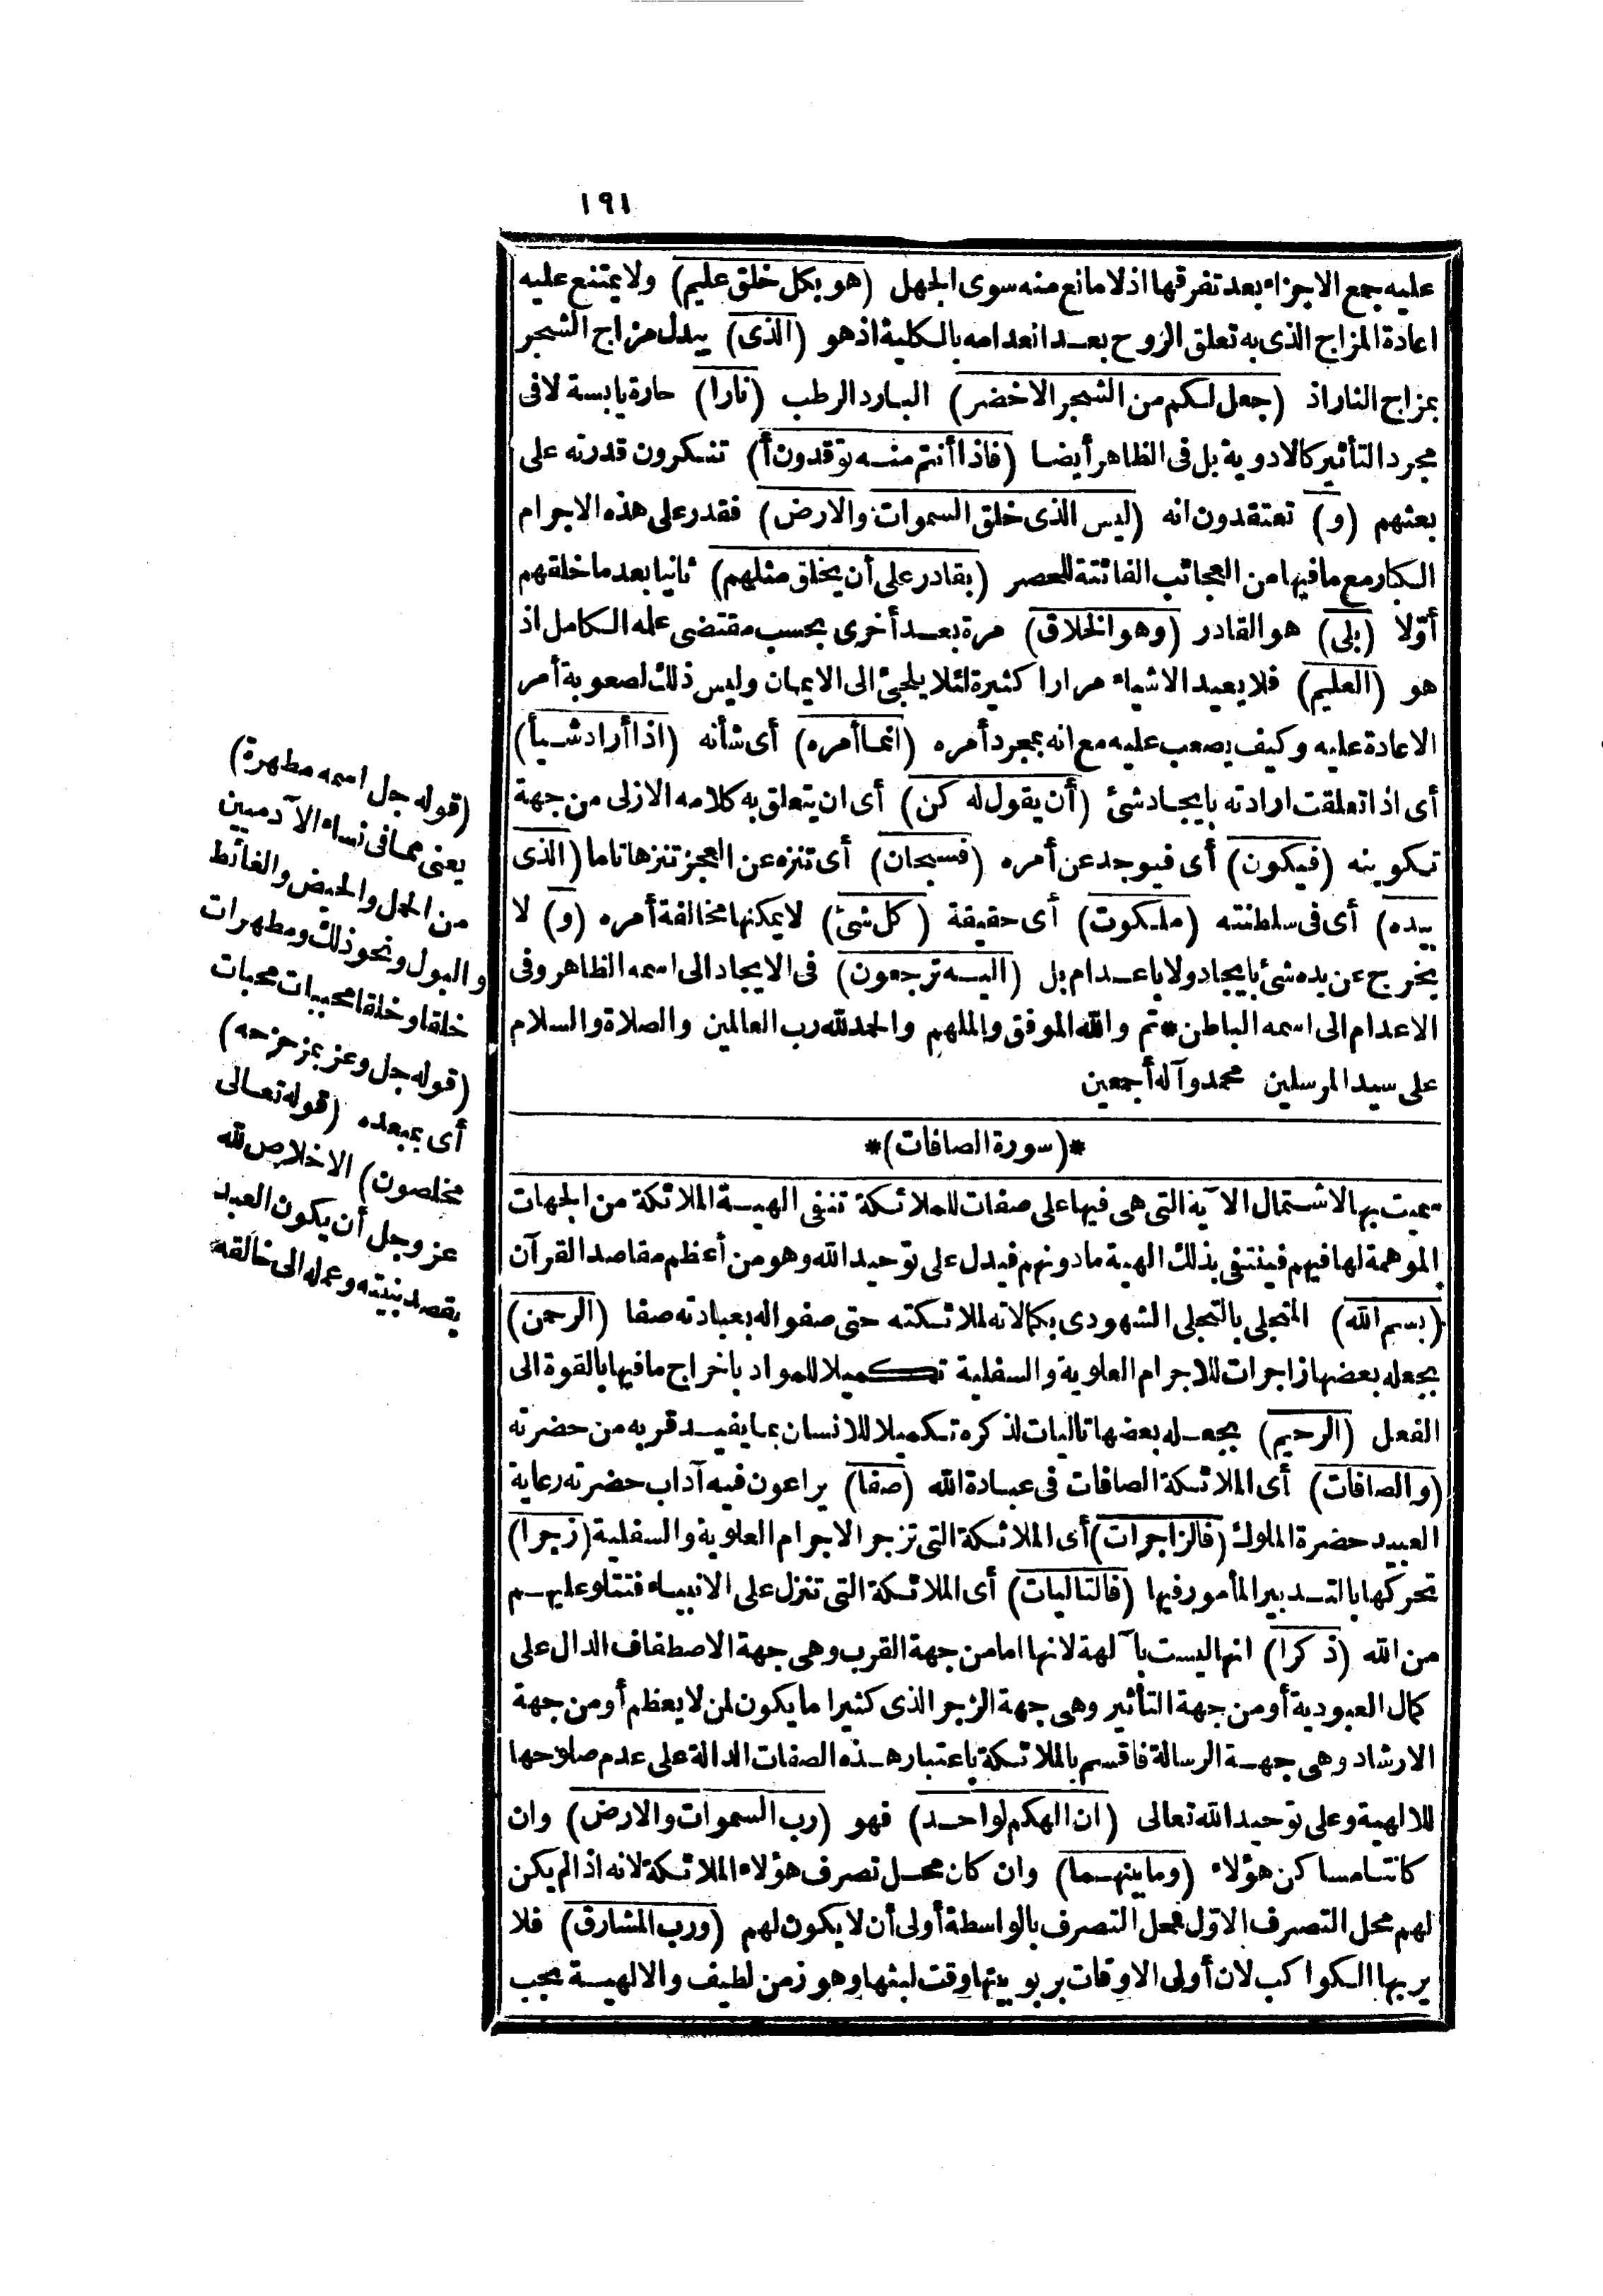 ١٩١
عليه جمع الاجزاء بعد تفرقها اذ لا مانع منه سوى الجهل (هو بكل خلق عليم) ولا يمتنع عليه
اعادة المزاج الذى به تعلق الروح بعد انعدامه بالكلية اذ هو (الذى) يبدل مزاج الشجر
بمزاج النار اذ (جعل لكم من الشجر الاخضر) البارد الرطب (نارا) حارة يابسة لا فى
مجرد التأثير كالادوية بل فى الظاهر أيضا (فاذا أنتم منه توقدون أ) تنكرون قدرته على
بعثهم (و) تعتقدون انه (ليس الذى خلق السموات والارض) فقدر على هذه الاجرام
الكبار مع ما فيها من العجائب الفائتة للحصر (بقادر على أن يخلق مثلهم) ثانيا بعد ما خلقهم
أوّلا (بلى) هو القادر (وهو الخلاق) مرة بعد أخرى بحسب مقتضى علمه الكامل اذ
هو (العليم) فلا يعيد الاشياء مرارا كثيرة لئلا يلجئ الى الايمان وليس ذلك لصعوبة أمر
الاعادة عليه وكيف يصعب عليه مع انه بمجرد أمره (انما أمره) أى شأنه (اذا أراد شيأ)
أى اذا تعلقت ارادته بايجاد شئ (أن يقول له كن) أى ان يتعلق به كلامه الازلى من جهة
تكوينه (فيكون) أى فيوجد عن أمره (فسبحان) أى تنزه عن العجز تنزها تاما (الذى
بيده) أى فى سلطنته (ملكوت) أى حقيقة (كل شئ) لا يمكنها مخالفة أمره (و) لا
يخرج عن يده شئ بايجاد ولا باعدام بل (اليه ترجعون) فى الايجاد الى اسمه الظاهر وفى
الاعدام الى اسمه الباطن * تم والله الموفق والملهم والحمد لله رب العالمين والصلاة والسلام
على سيد المرسلين محمد وآله أجمعين
*(سورة الصافات)*
سميت بها لاشتمال الآية التى هى فيها على صفات للملائكة تنفى الهية الملائكة من الجهات
الموهمة لها فيهم فينتفى بذلك الهية ما دونهم فيدل على توحيد الله وهو من أعظم مقاصد القرآن
(بسم الله) المتجلى بالتجلى الشهودى بكمالاته لملائكته حتى صفوا له بعبادته صفا (الرحمن)
بجعله بعضها زاجرات للاجرام العلوية والسفلية تكميلا للمواد باخراج ما فيها بالقوة الى
الفعل (الرحيم) بجعله بعضها تاليات لذكره تكميلا للانسان بما يفيد قربه من حضرته
(والصافات) أى الملائكة الصافات فى عبادة الله (صفا) يراعون فيه آداب حضرته رعاية
العبيد حضرة الملوك (فالزاجرات) أى الملائكة التى تزجر الاجرام العلوية والسفلية (زجرا)
تحركها بالتدبير المأمور فيها (فالتاليات) أى الملائكة التى تنزل على الانبياء فتتلو عليهم
من الله (ذكرا) انها ليست بآلهة لانها اما من جهة القرب وهى جهة الاصطفاف الدال على
كمال العبودية أو من جهة التأثير وهى جهة الزجر الذى كثيرا ما يكون لمن لا يعظم أو من جهة
الارشاد وهى جهة الرسالة فاقسم بالملائكة باعتبار هذه الصفات الدالة على عدم صلوحها
للالهية وعلى توحيد الله تعالى (ان الهكم لواحد) فهو (رب السموات والارض) وان
كانتا مساكن هؤلاء (وما بينهما) وان كان محل تصرف هؤلاء الملائكة لانه اذا لم يكن
لهم محل التصرف الاوّل فمحل التصرف بالواسطة أولى أن لا يكون لهم (ورب المشارق) فلا
يربها الكواكب لان أولى الاوقات بربوبيتها وقت لبثها وهو زمن لطيف والالهية يجب
(قوله جل اسمه مطهرة)
يعنى مما فى نساء الآدميين
من الحمل والحيض والغائط
والبول ونحو ذلك ومطهرات
خلقا وخلقا محببات محبات
(قوله جل وعز بمزحزحه)
أى بمبعده (قوله تعالى
مخلصون) الاخلاص لله
عز وجل أن يكون العبد
يقصد بنيته وعمله الى خالقه